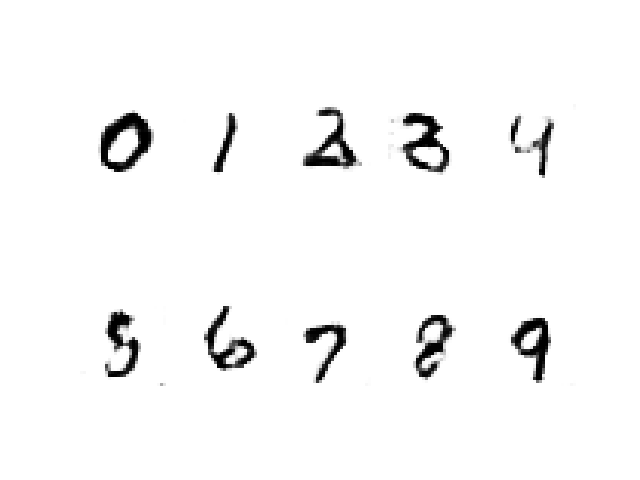 0 1 2 3 4
5 6 7 8 9